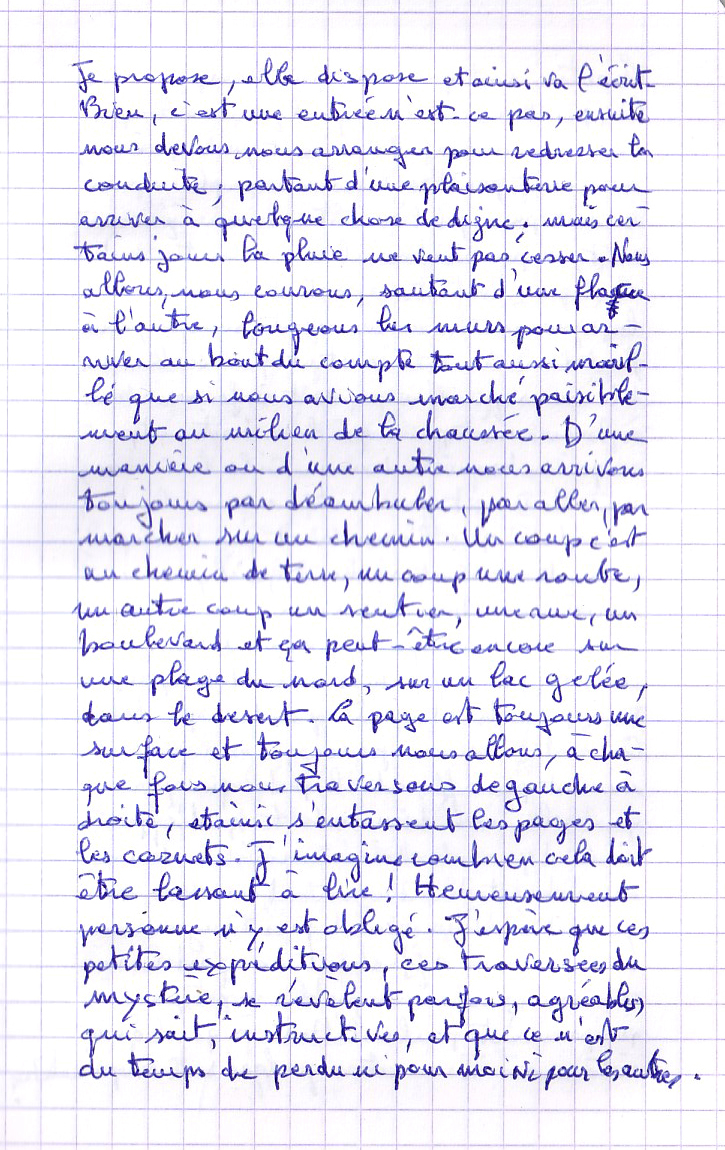 Je propose, elle dispose et ainsi va l'écrit.
Bien, c'est une entrée n'est-ce pas, ensuite
nous devons nous arranger pour redresser la
conduite, partant d'une plaisanterie pour
arriver à quelque chose de digne, mais cer-
tains jours la pluie ne veut pas cesser. Nous
allons, nous courons, sautant d'une flaque
à l'autre, longeons les murs pour ar-
river au bout du compte tout aussi mouil-
lé que si nous avions marché paisible-
ment au milieu de la chaussée. D'une
manière ou d'une autre nous arrivons
toujours par déambuler, par aller, par
marcher sur un chemin. Un coup c'est
un chemin de terre, un coup une route,
un autre coup un sentier, une rue, un
boulevard et ça peut-être encore sur
une plage du nord, sur un lac gelée,
dans le desert. La page est toujours une
surface et toujours nous allons, à cha-
que fois nous traversons de gauche à
droite, et ainsi s'entassent les pages et
les carnets. J'imagine combien cela doit
être lassant à lire ! Heureusement
personne n'y est obligé. J'espère que ces
petites expéditions, ces traversées du
mystère, se révèlent parfois, agréables,
qui sait, instructives, et que ce n'est
du temps de perdu ni pour moi ni pour les autres.